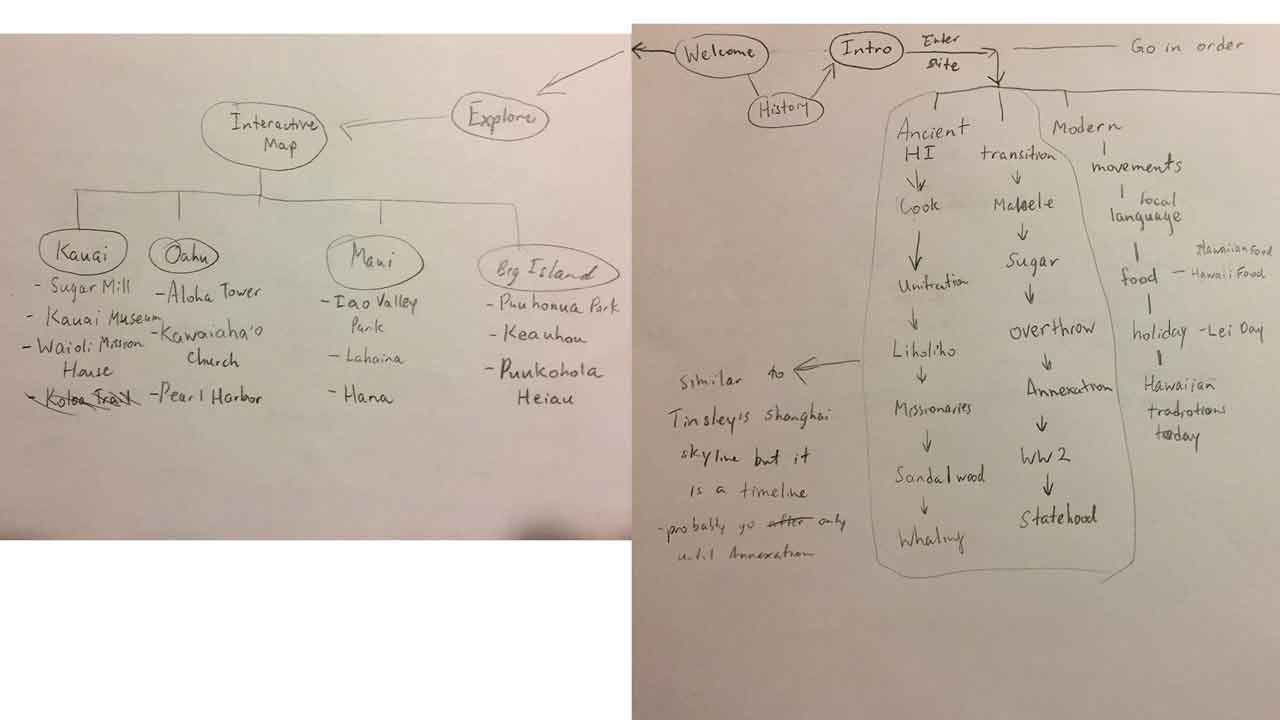 Explore
Interactive
Map
Kauai
- Sugar Mill
- Kauai Museum
- Waioli Mission
House
- Koloa Trail
Oahu
- Aloha Tower
- Kawaiaha'o
Church
- Pearl Harbor
Maui
- Iao Valley
Park
- Lahaina
- Hana
Big Island
- Puuhonua Park
- Keauhou
- Puukohola
Heiau
Welcome
History
Intro
Enter
site
Go in order
Ancient
HI
Cook
Unification
Liholiho
Missionaries
Sandalwood
Whaling
transition
Mahele
Sugar
overthrow
Annexation
WW2
Statehood
Modern
movements
local
language
food
- Hawaiian Food
Hawaii Food
holiday - Lei Day
Hawaiian
traditions
today
Similar to
Tinsley's Shanghai
skyline but it
is a timeline
- probably go after only
until Annexation